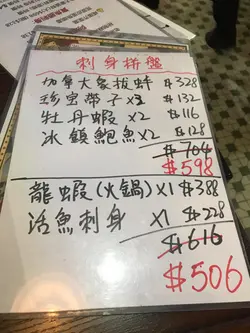 刺身拼盤
加拿大象拔蚌 $328
珍宝帶子x3 $132
牡丹蝦x2 $116
冰鎮鮑魚x2 $128
$704
$598
龍蝦(火鍋)x1 $388
活魚刺身 x1 $228
$616
$506